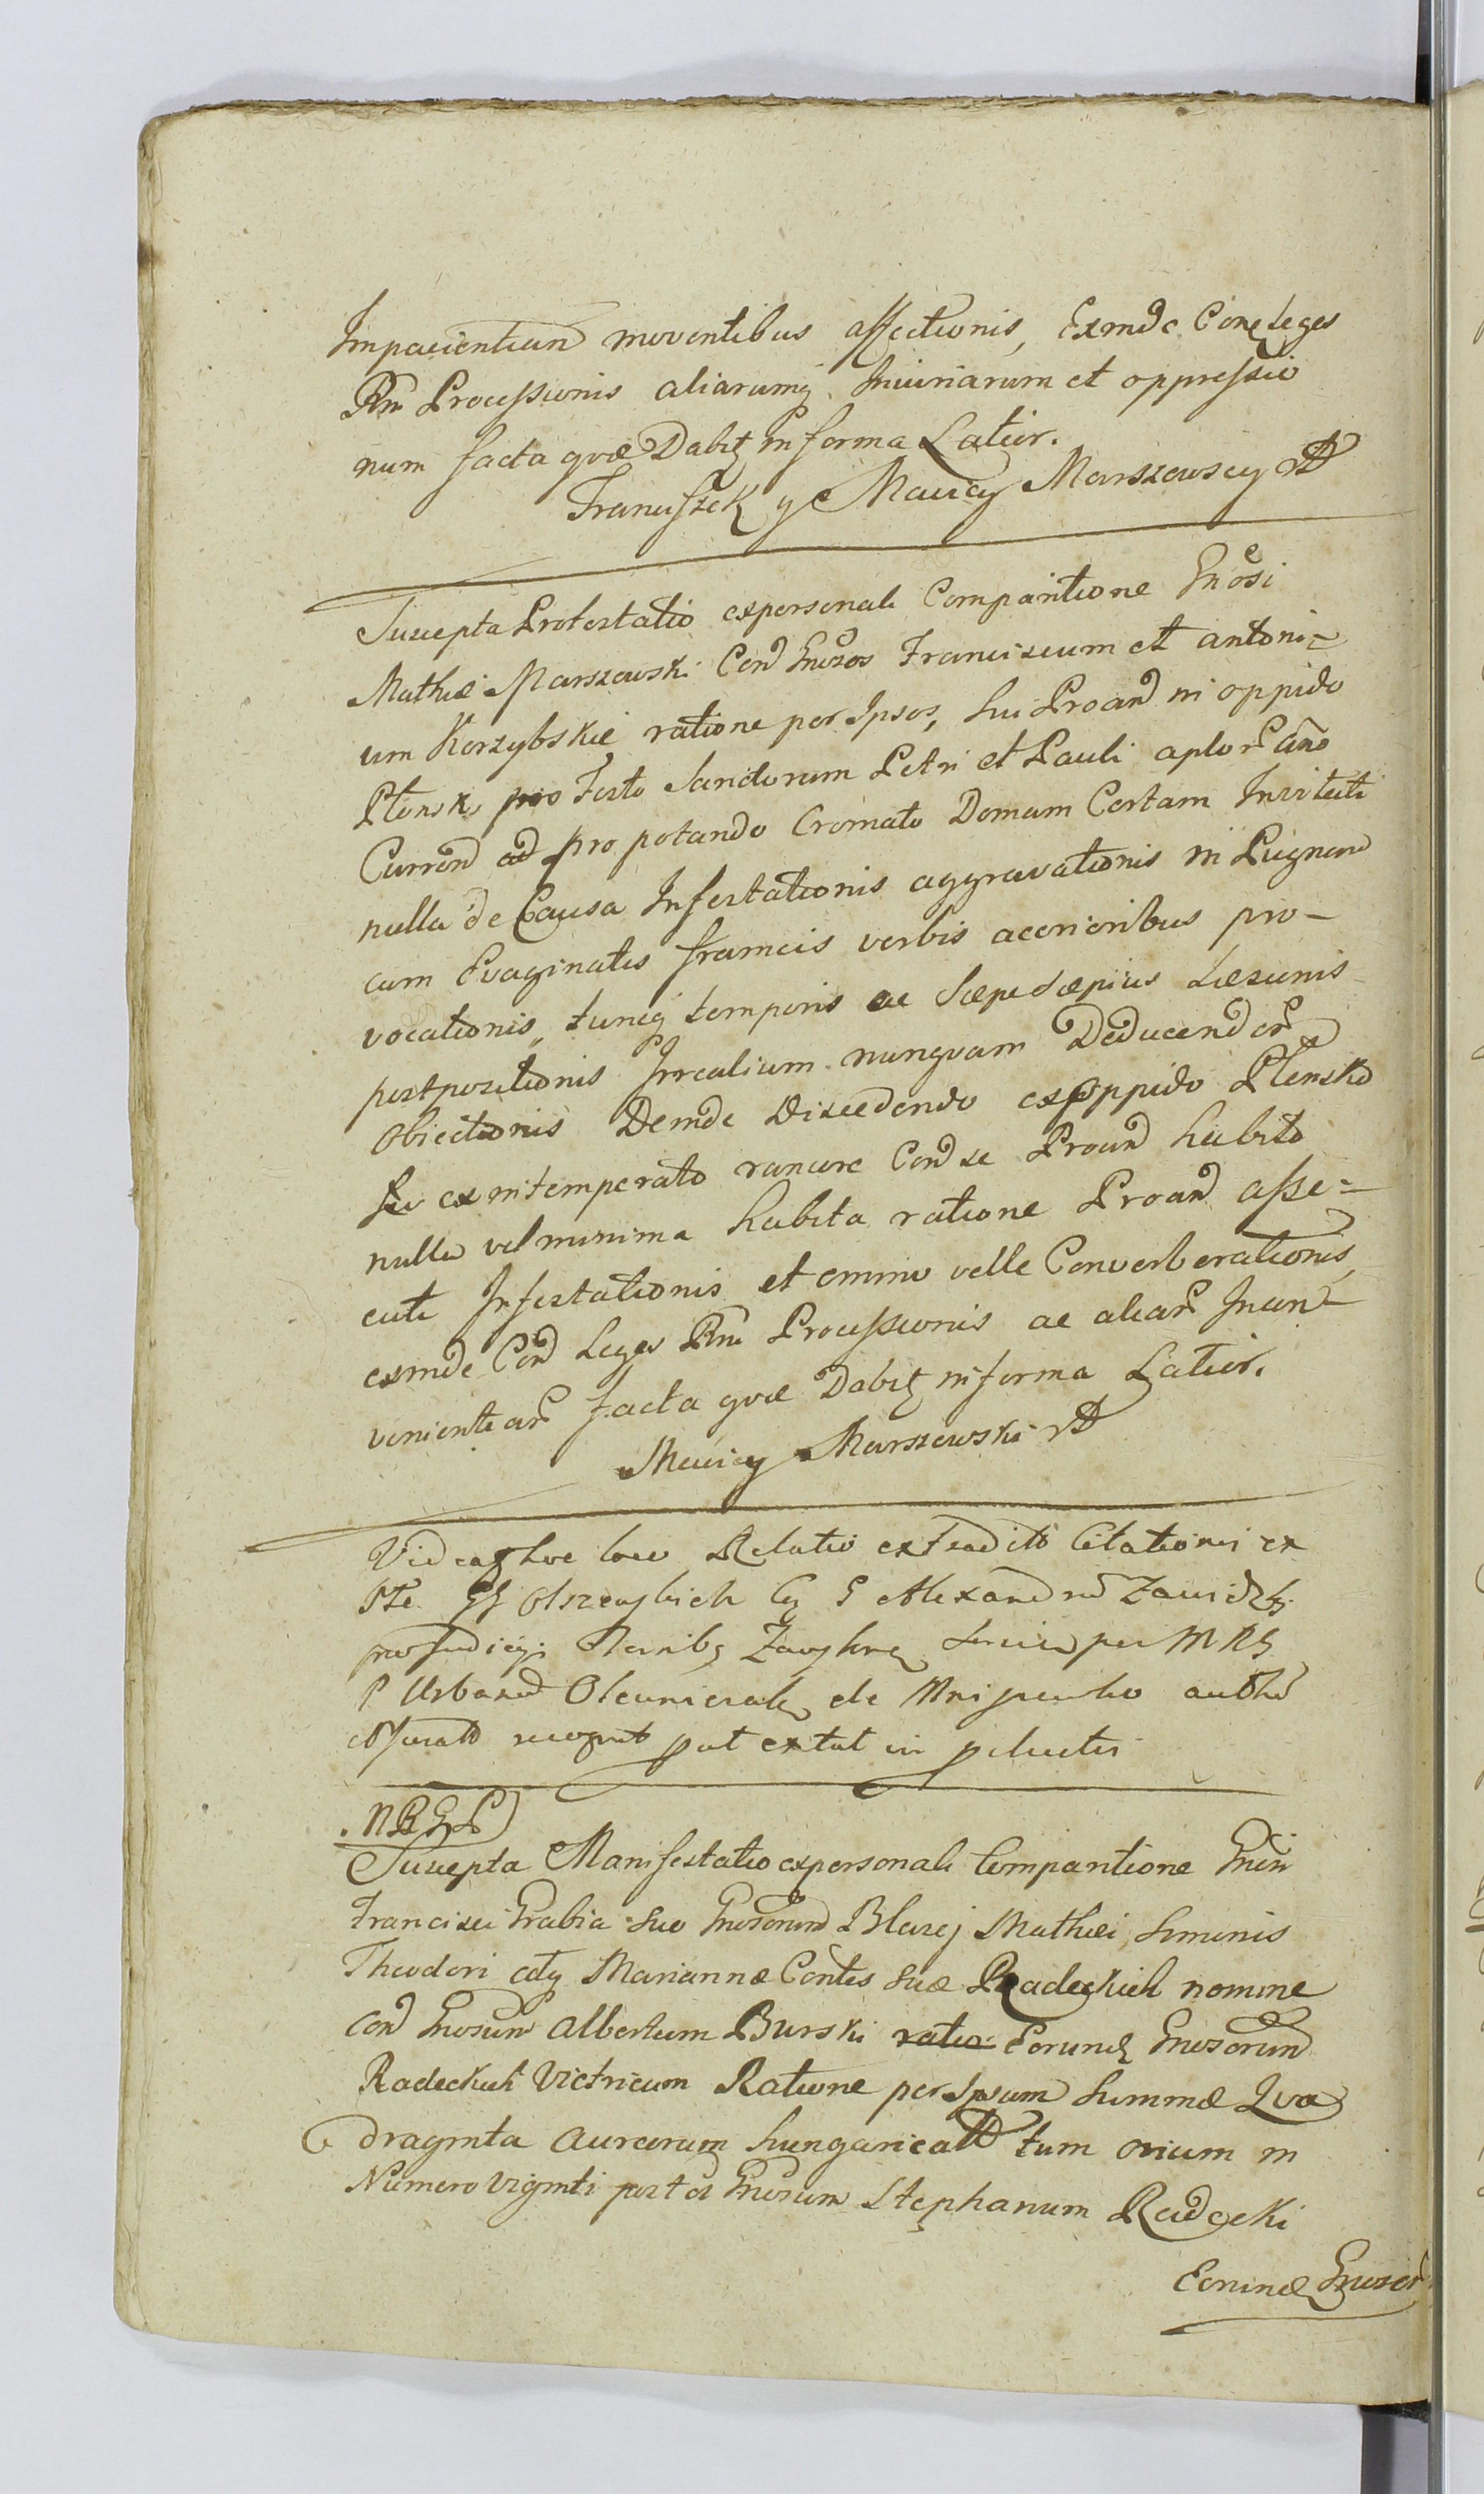 Impacientiam moventibus affectionis, Exinde Con leges
Rni Processionis aliarumq Iniuriarum et oppressio
num facta quæ Dabit in forma Latior.
Franciszek y Maciey Marszewscy
Suscepta Protestatio ex personali Comparitione Gnosi
Mathiæ Marszewski Con Gnosos Franciscum et antoni=
um Korzybskie ratione per Ipsos, sui Proan in oppido
Płonsko pro Festo Sanctorum Petri et Pauli aplor año
Curren ad pro potando Cromato Domum Certam Invitati
nulla de Causa Infestationis aggravationis in Pugnam
cum Evaginatis frameis verbis acerioribus pro-
vocationis, tuncq temporis ac Sæpe sæpius Læsionis
postpositionis Irrealium nunquam Deducendor
Obiectionis Deinde Discedendo ex oppido Płonsko
Su ex intemperato rancore Con se Proan habito
nulla vel minima habita ratione Proan asse=
cuti Infestationis et omnino velle Converberationis,
exinde Con Leges Rni Processionis ac aliar Incon=
venientiar facta quæ Dabit in forma Latior.
Maciey Marszewski
Videat hoc loco Relatio extradit Citationis ex
Pte GG Olszewskich C G Alexandr Zawidzki
P Urbanu de authen
jurat recognit put extat in
NB GL
Suscepta Manifestatio ex personali Comparitione Gnsi
Francisci Grabia suo Gnosorum Blazej Mathiæi, Simonis
Theodori atq Mariannæ Contis suæ Radeckich nomine
Con Gnosum Albertum Burski ratio Eorund Gnosorum
Radeckich Victricum Ratione per Ipsum Summæ Qua
draginta Aureorum hungarical tum ovium in
Numero Viginti post ol Gnosum Stephanum Radecki
Eorund Gnosor